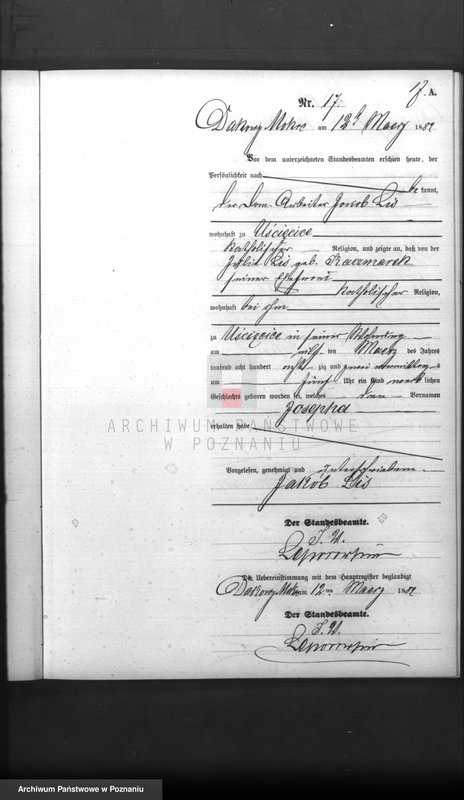 17. A.
Nr. 17.
Dakowy Mokre am 12ten Maerz 1882
Vor dem unterzeichneten Standesbeamten erschien heute, der
Persönlichkeit nach
be kannt,
der Dom. Arbeiter Jacob Lis
wohnhaft zu Uścięcice
katholischer Religion, und zeigte an, daß von der
Julie Lis geb. Kaczmarek
seiner Ehefrau
katholischer Religion,
wohnhaft bei ihm
zu Uścięcice in seiner Wohnung
am ten Maerz des Jahres
tausend acht hundert acht zig und zwei
um fünf Uhr ein Kind weib lichen
Geschlechts geboren worden sei, welches den Vornamen
Josepha
erhalten habe
ARCHIWUM PAŃSTWOWE
W POZNANIU
Vorgelesen, genehmigt und unterschrieben
Jakób Lis
Der Standesbeamte.
Die Uebereinstimmung mit dem Hauptregister beglaubigt
Dakowy Mokre am 12ten Maerz 1882
Der Standesbeamte.
Archiwum Państwowe w Poznaniu